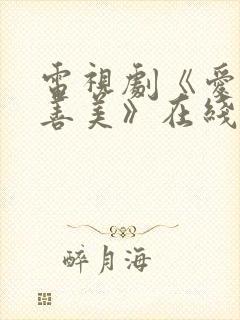 電視劇《愛
喜美》在綫
醉月海